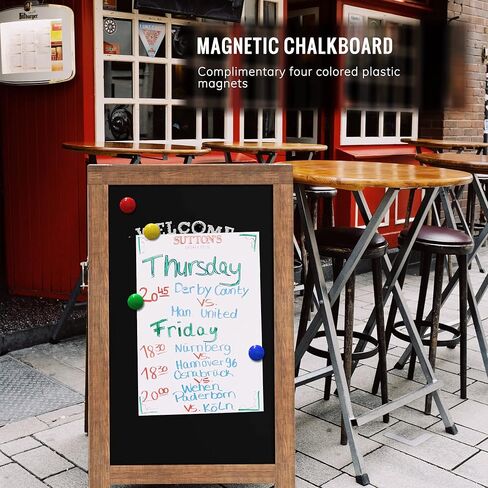 Bitburger
MAGNETIC CHALKBOARD
Complimentary four colored plastic
magnets
WELCOME
SUTTON'S
Thursday
20 45 Derby County
VS.
Man United
Friday
18 30 Nürnberg
VS.
Hannover 96
18 30 Osnabrück
VS
Wehen
20 00 Paderborn
VS. KÖLN